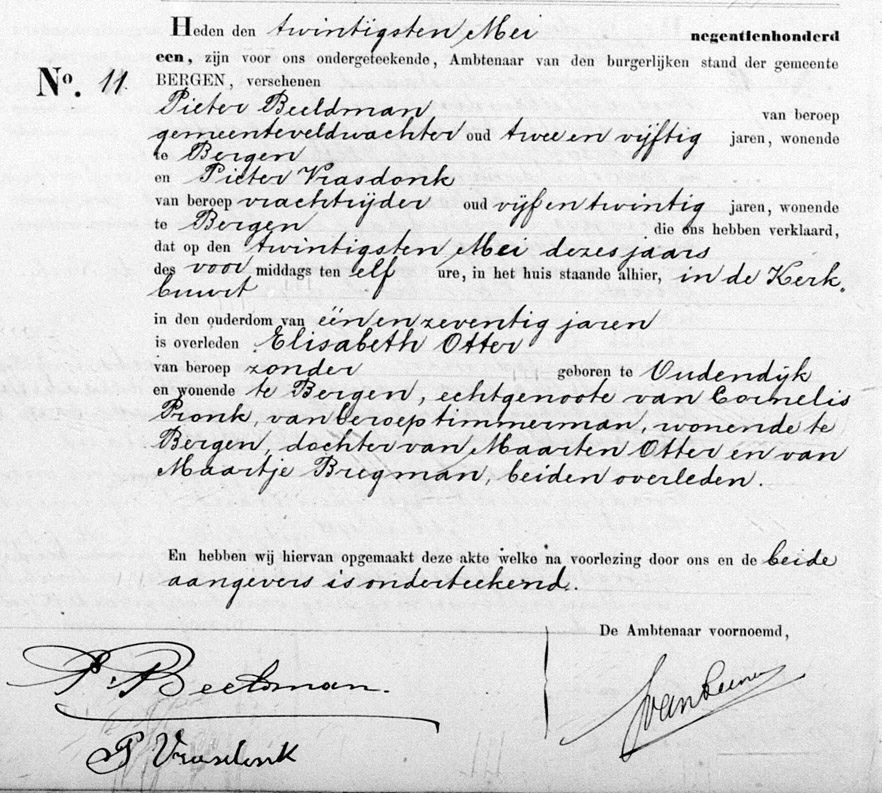 Heden den twintigsten Mei negentienhonderd
een, zijn voor ons ondergeteekende, Ambtenaar van den burgerlijken stand der gemeente
No. 11. BERGEN, verschenen
Pieter Beeldman van beroep
gemeenteveldwachter oud twee en vijftig jaren, wonende
te Bergen
en Pieter Vrasdonk
van beroep vrachtrijder oud vijf en twintig jaren, wonende
te Bergen die ons hebben verklaard,
dat op den twintigsten Mei dezes jaars
des voor middags ten elf ure, in het huis staande alhier, in de Kerk
buurt
in den ouderdom van één en zeventig jaren
is overleden Elisabeth Otter
van beroep zonder geboren te Oudendijk
en wonende te Bergen, echtgenoote van Cornelis
Pronk, van beroep timmerman, wonende te
Bergen, dochter van Maarten Otter en van
Maartje Bregman, beiden overleden.
En hebben wij hiervan opgemaakt deze akte welke na voorlezing door ons en de beide
aangevers is onderteekend.
De Ambtenaar voornoemd,
P. Beeldman.
P Vrasdonk